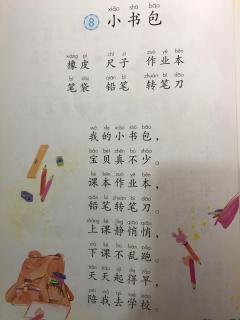 xiǎo shū bāo
⑧ 小书包
xiàng pí chǐ zi zuò yè běn
橡皮 尺子 作业本
bǐ dài qiān bǐ zhuàn bǐ dāo
笔袋 铅笔 转笔刀
wǒ de xiǎo shū bāo
我的小书包，
bǎo bèi zhēn bù shǎo
宝贝真不少。
kè běn zuò yè běn
课本作业本，
qiān bǐ zhuàn bǐ dāo
铅笔转笔刀。
shàng kè jìng qiāo qiāo
上课静悄悄，
xià kè bú luàn pǎo
下课不乱跑。
tiān tiān qǐ de zǎo
天天起得早，
péi wǒ qù xué xiào
陪我去学校。